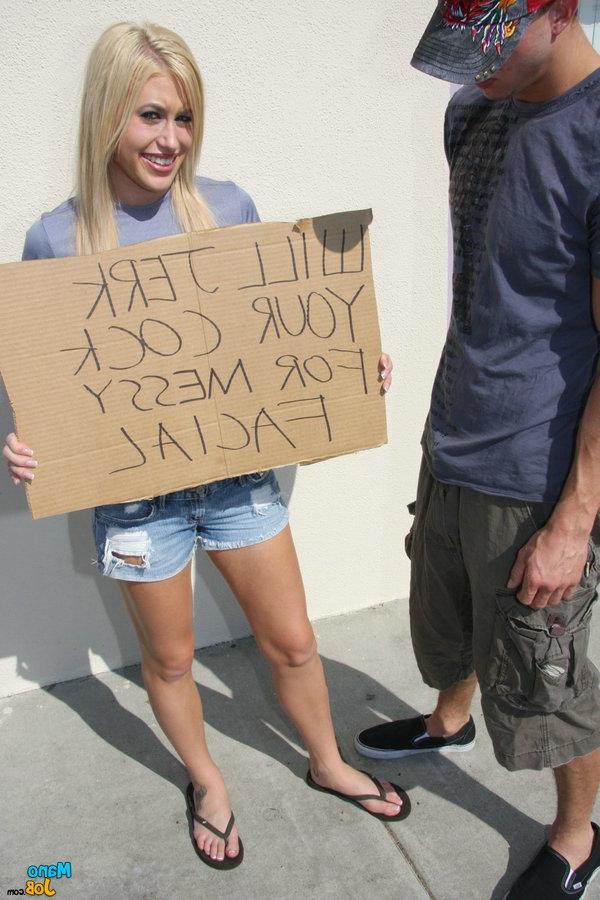 WILL JERK
YOUR COCK
FOR MESSY
FACIAL
Mano
JOB
.com